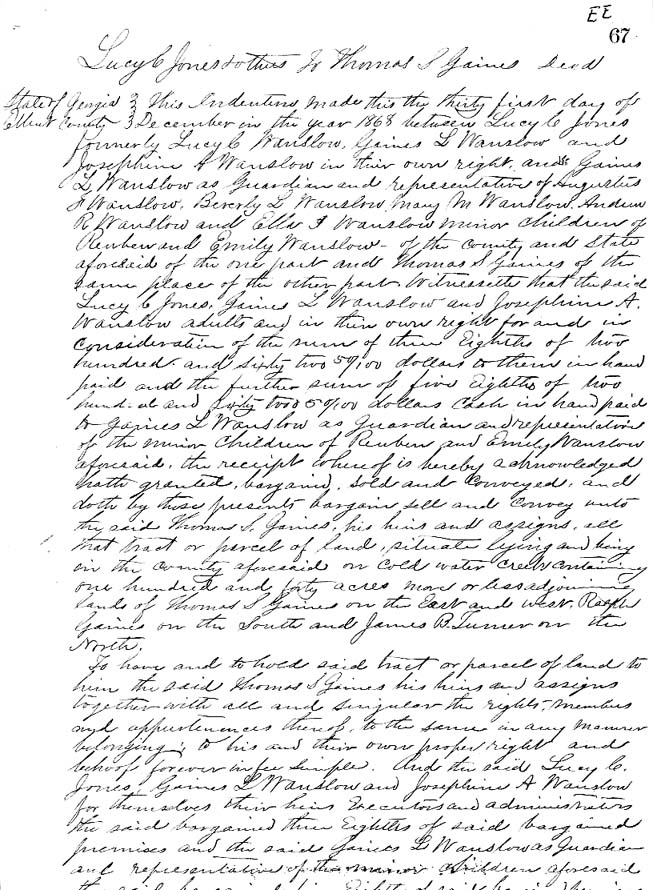 EE
67
Lucy C Jones & others To Thomas S Gaines Deed
State of Georgia } This Indenture made this the thirty first day of
Elbert County } December in the year 1868 between Lucy C Jones
formerly Lucy C Wanslow, Gaines L Wanslow and
Josephine A Wanslow in their own right, and Gaines
L Wanslow as Guardian and representative of Augustus
F Wanslow, Beverly L Wanslow, Mary M Wanslow, Andrew
R Wanslow and Ella F Wanslow minor children of
Reuben and Emily Wanslow - of the County and State
aforesaid of the one part and Thomas S Gaines of the
same place of the other part Witnesseth that the said
Lucy C Jones, Gaines L Wanslow and Josephine A.
Wanslow adults and in their own right for and in
Consideration of the sum of three Eighths of two
hundred and sixty two 50/100 dollars to them in hand
paid and the further sum of five Eighths of two
hund-ed and sixty two 50/100 dollars Cash in hand paid
to Gaines L Wanslow as Guardian and representation
of the minor Children of Reuben and Emily Wanslow
aforesaid, the receipt whereof is hereby acknowledged
hath granted, bargained, sold and Conveyed, and
doth by these presents bargain sell and Convey unto
the said Thomas S. Gaines, his heirs and assigns, all
that tract or parcel of land, situate lying and being
in the County aforesaid on Cold water Creek containing
one hundred and forty acres more or less adjoining
lands of Thomas S Gaines on the East and west, Ralph
Gaines on the South and James B Turner on the
North.
To have and to hold said tract or parcel of land to
him the said Thomas S Gaines his heirs and assigns
together with all and singular the rights, members
and appurtenences thereof, to the same in any manner
belonging; to his and their own proper right and
behoof forever in fee simple. And the said Lucy C.
Jones, Gaines L Wanslow and Josephine A Wanslow
for themselves their heirs Executors and administrators
the said bargained three Eighths of said bargained
premises and the said Gaines L Wanslow as Guardian
and representation of the minor children aforesaid